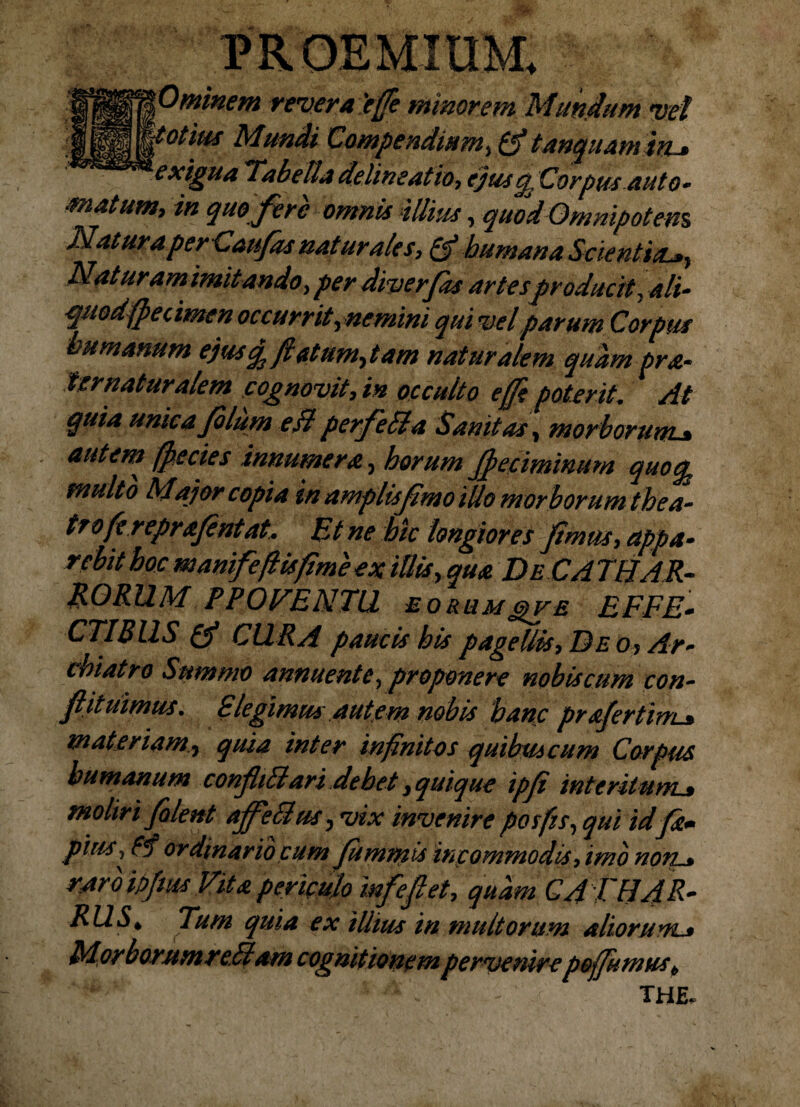 PROEMIUM.
HOminem revera esse minorem Mundum vel
totius Mundi Compendium, & tanquam in
exigua Tabella delineatio, ejusq; Corpus auto-
matum, in quo fere omnis illius, quod Omnipotens
Natura per Causas naturales, & humana Scientia,
Naturam imitando, per diversas artes producit, ali-
quod specimen occurrit, nemini qui vel parum Corpus
humanum ejusq; statum, tam naturalem quàm præ-
ternaturalem cognovit, in occulto esse poterit. At
quia unica solùm est perfecta Sanitas, morborum
autem species innumeræ, horum speciminum quoq;
multò Major copia in amplissimo illo morborum thea-
tro se repræsentat. Et ne hîc longiores simus, appa-
rebit hoc manifestissimè ex illis, quæ DE CATHAR-
RORUM PPOVENTU EORUMQVE EFFE-
CTIBUS & CURA paucis his pagellis, DEO, Ar-
chiatro Summo annuente, proponere nobiscum con-
stituimus. Elegimus autem nobis hanc præsertim
materiam, quia inter infinitos quibuscum Corpus
humanum conflictari debet, quique ipsi interitum
moliri solent affectus, vix invenire possis, qui id sæ-
pius, & ordinariò cum summis incommodis, imò non
rarò ipsius Vitæ periculo infestet, quàm CATHAR-
RUS. Tum quia ex illius in multorum aliorum
Morborum rectam cognitionem pervenire possumus.
THE-